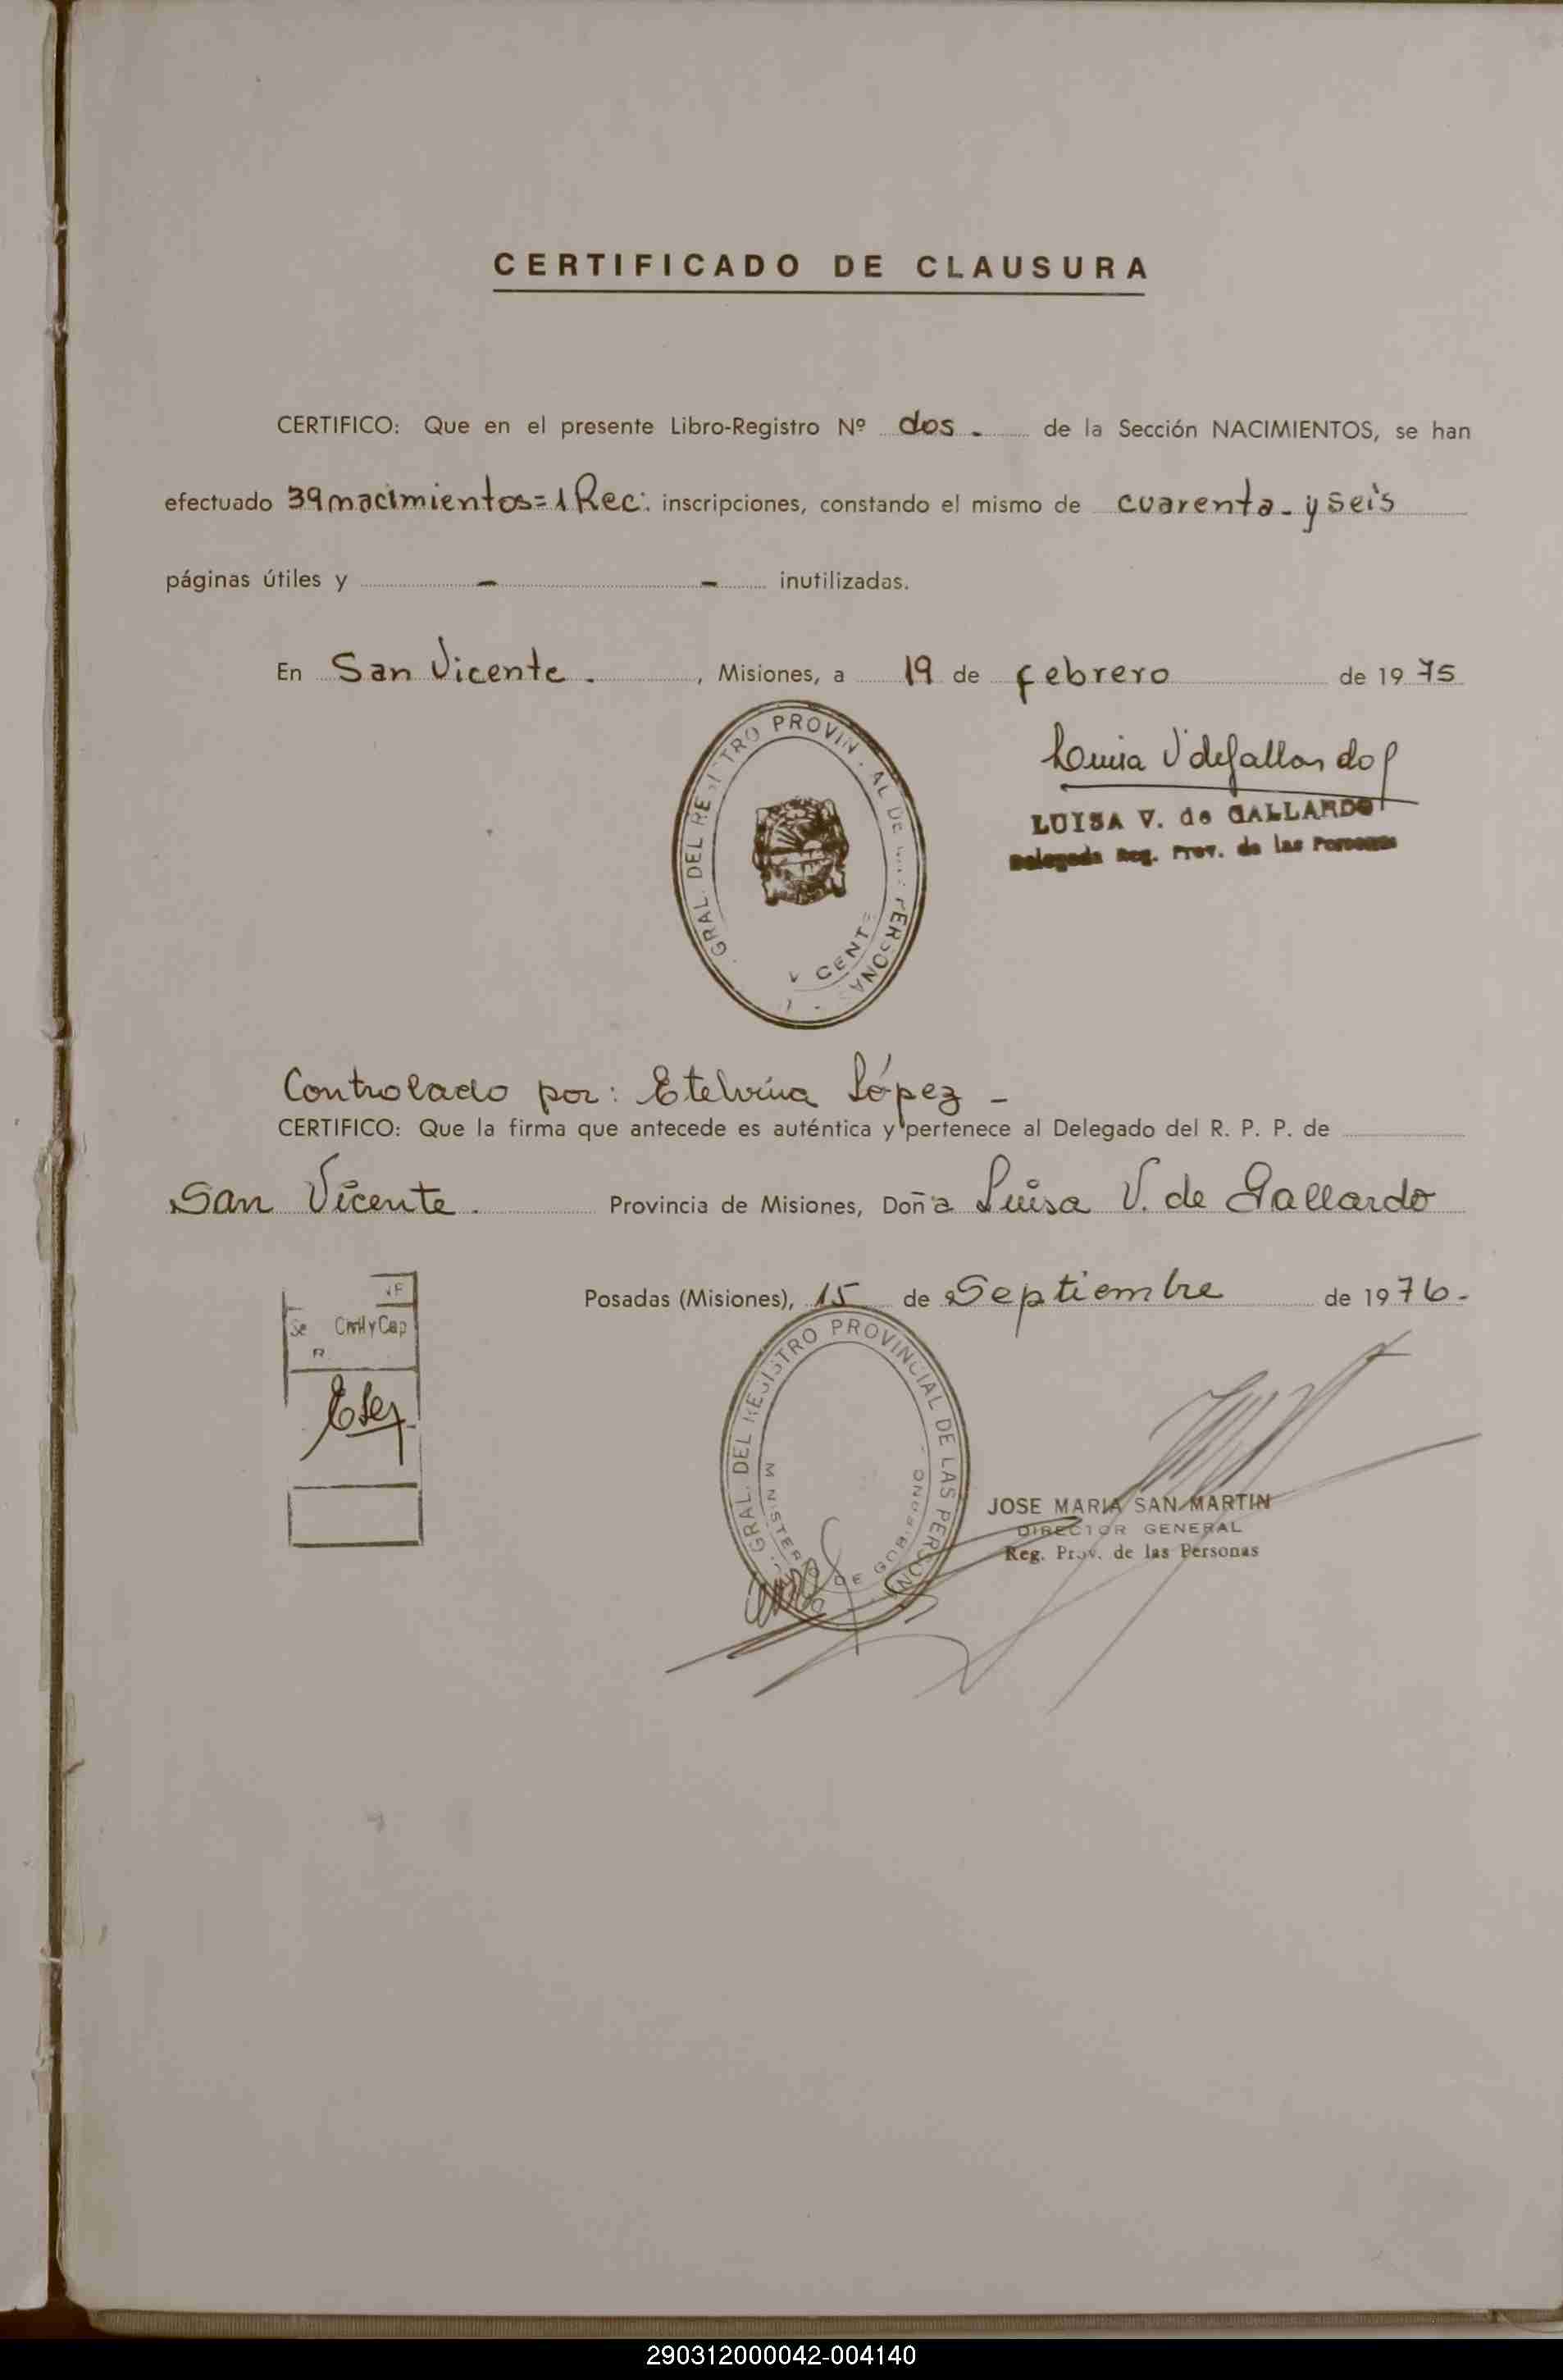 CERTIFICADO DE CLAUSURA
CERTIFICO: Que en el presente Libro-Registro Nº dos. de la Sección NACIMIENTOS, se han
efectuado 39 nacimientos=1 Rec: inscripciones, constando el mismo de cuarenta - y seis
páginas útiles y - - inutilizadas.
En San Vicente. , Misiones, a 19 de febrero de 1975
GRAL. DEL REGISTRO PROVINCIAL DE LAS PERSONAS
Luisa V de Gallardo
LUISA V. de GALLARDO
Delegada Reg. Prov. de las Personas
Controlado por: Etelvina López -
CERTIFICO: Que la firma que antecede es auténtica y pertenece al Delegado del R. P. P. de
San Vicente. Provincia de Misiones, Doña Luisa V. de Gallardo
Posadas (Misiones), 15 de Septiembre de 1976-
Civil y Cap
GRAL. DEL REGISTRO PROVINCIAL DE LAS PERSONAS
MINISTERIO DE GOBIERNO
JOSE MARIA SAN MARTIN
DIRECTOR GENERAL
Reg. Prov. de las Personas
290312000042-004140